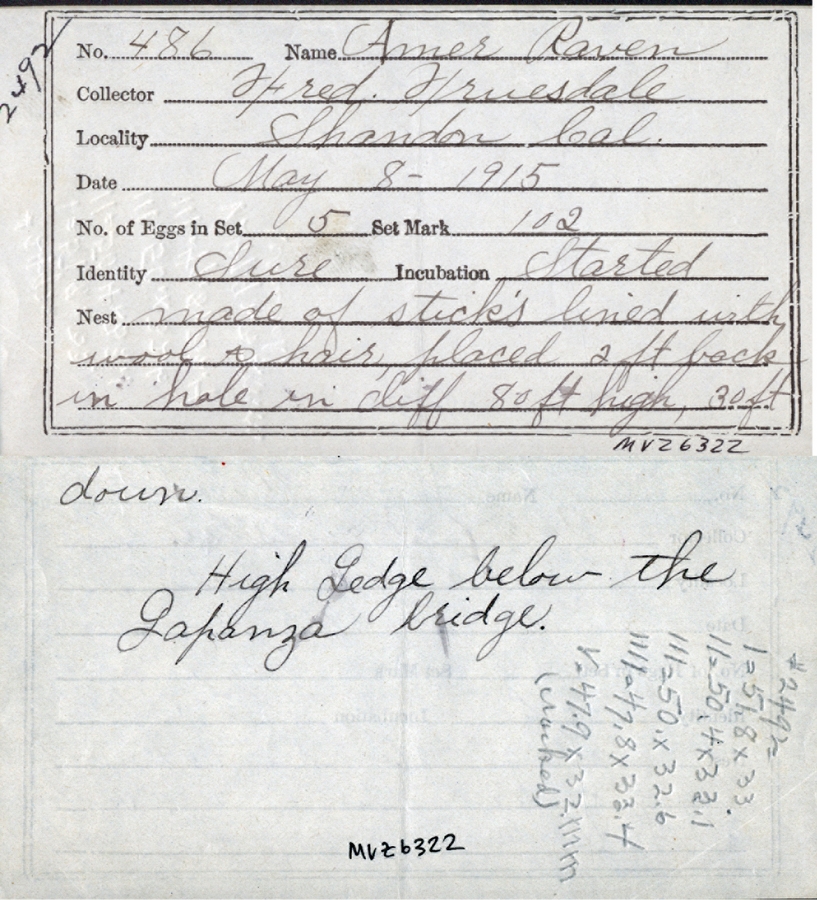 2492
No. 486 Name Amer Raven
Collector Fred. Truesdale
Locality Shandon Cal.
Date May 8- 1915
No. of Eggs in Set 5 Set Mark 102
Identity Sure Incubation Started
Nest made of stick's lined with
wool & hair, placed 2 ft back
in hole in cliff 80 ft high, 30 ft
MVZ6322
down.
High Ledge below the
Lapanza bridge.
#2492=
I=51.8 x 33.
II=50.4 x 33.1
III=50. x 32.6
IIII=47.8 x 33.4
V=47.9 x 32. mm
(cracked)
MVZ6322